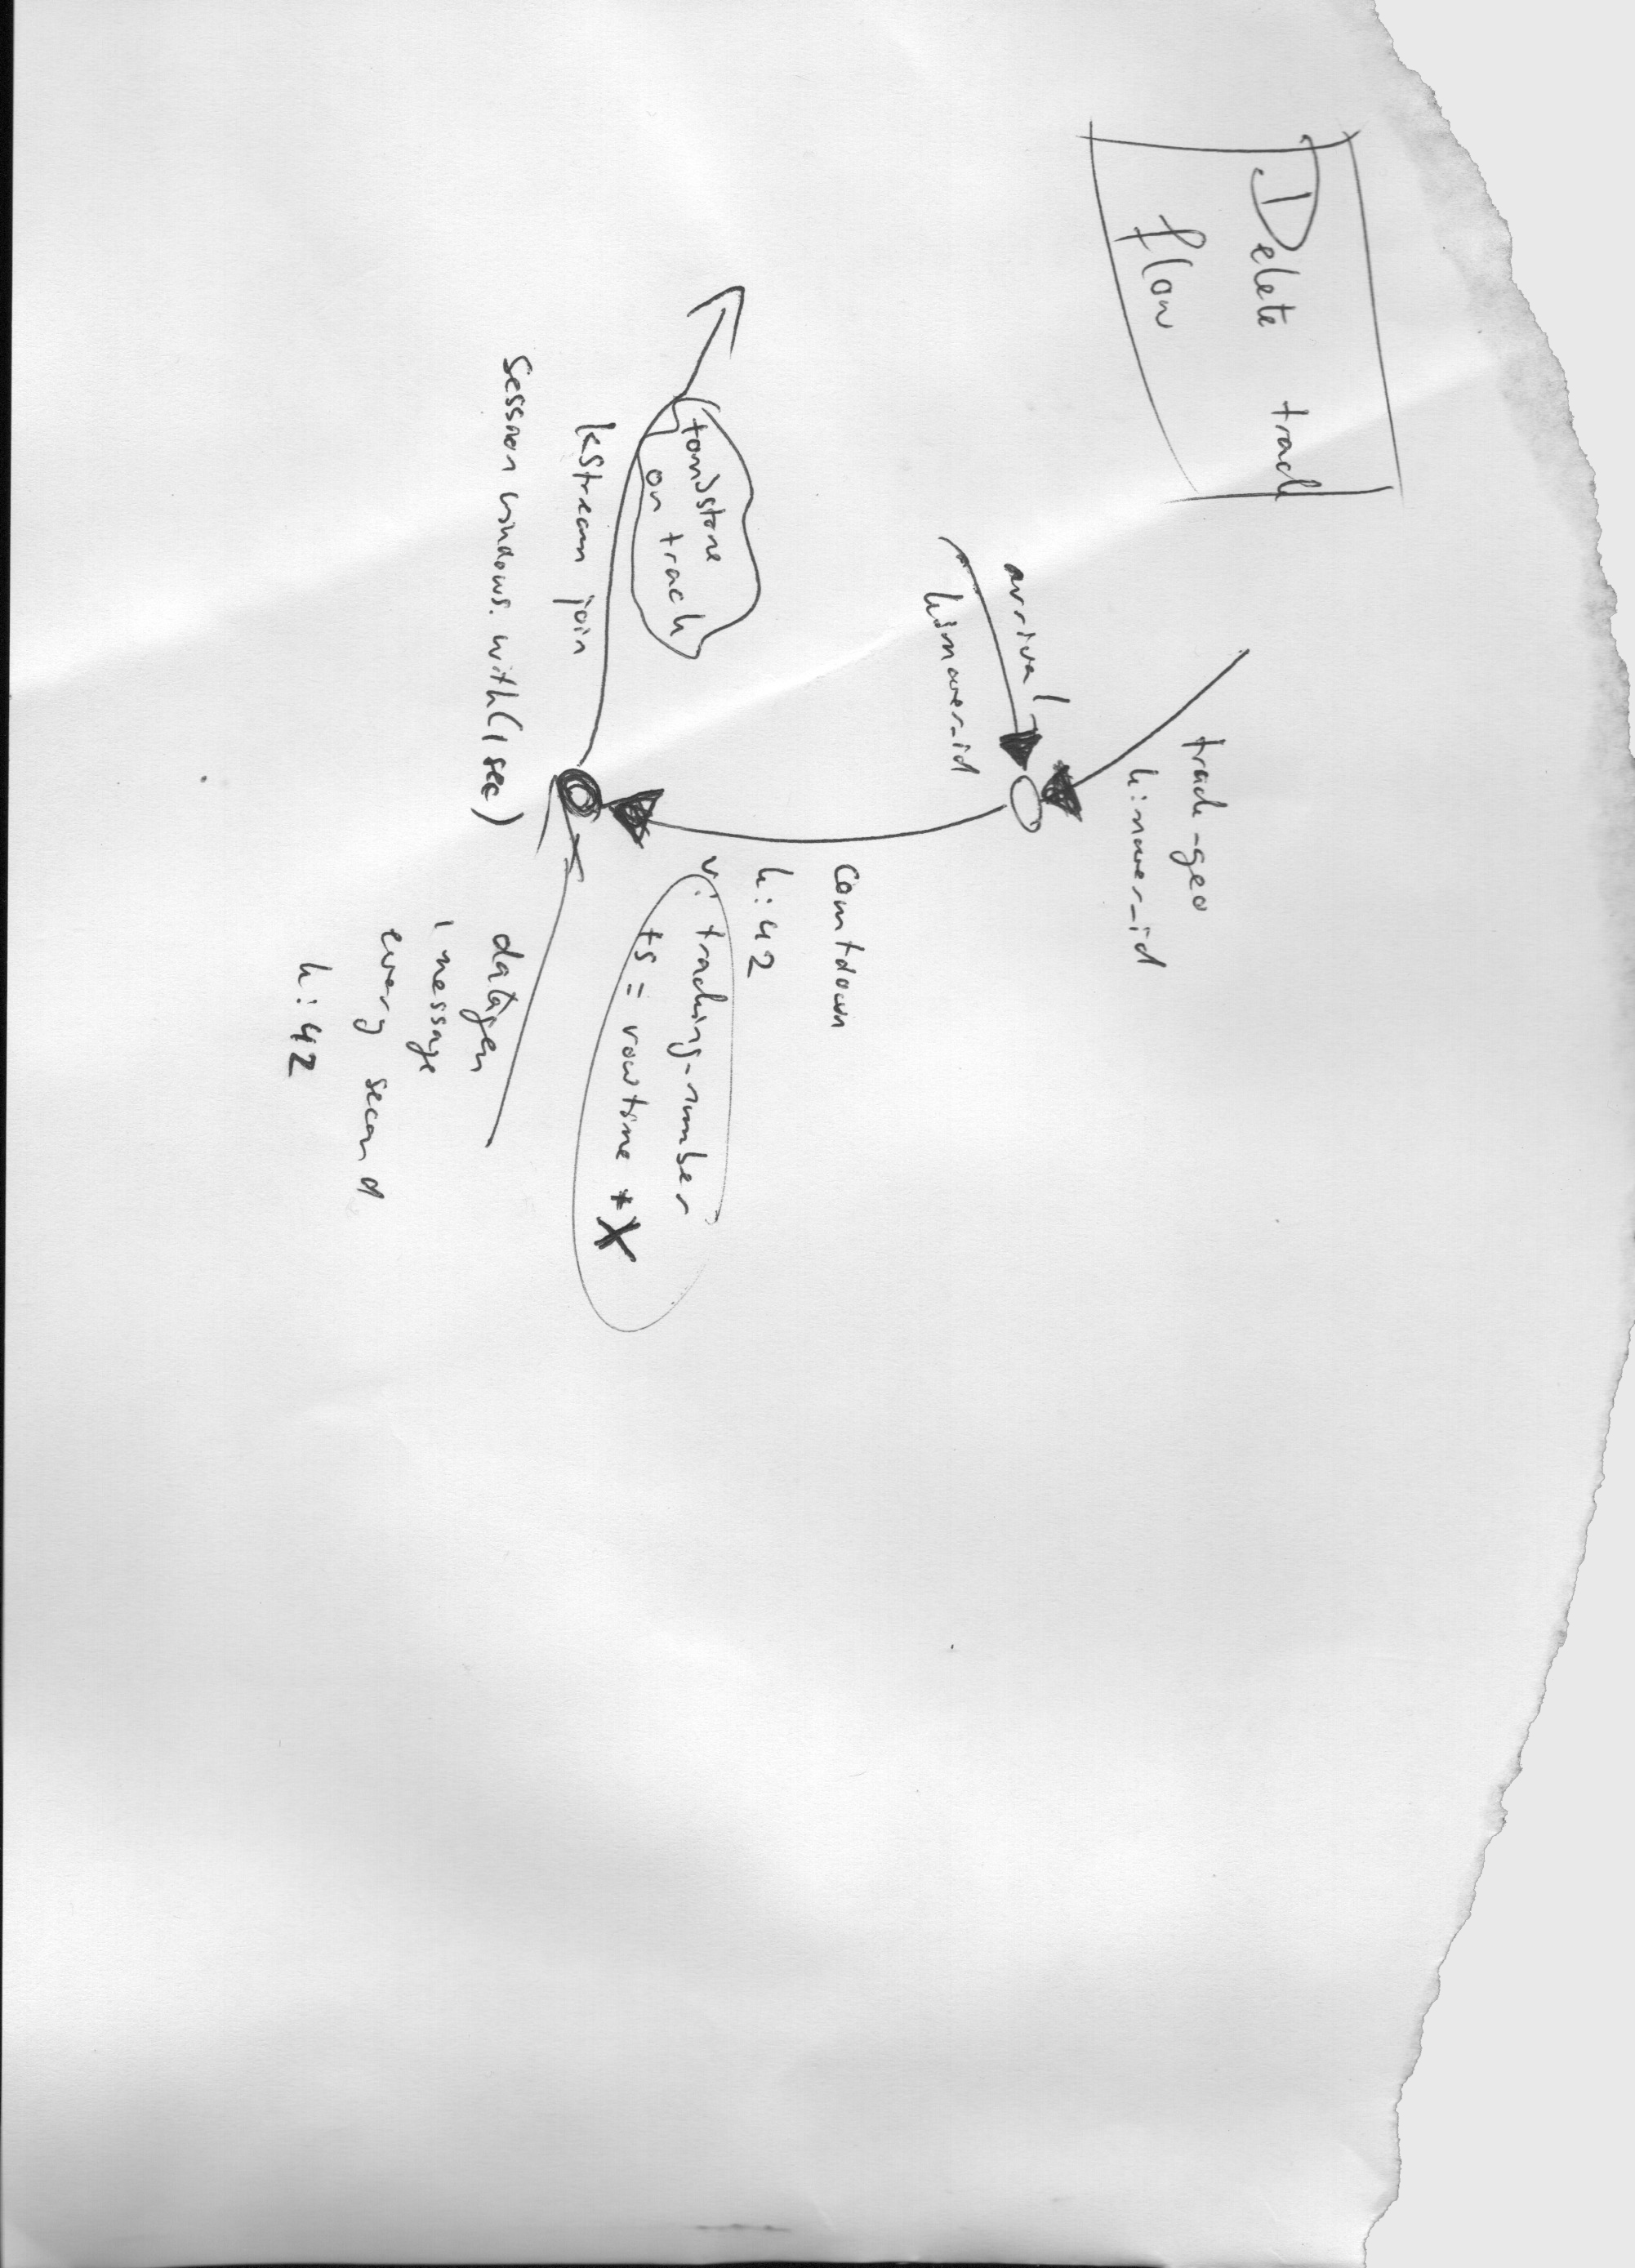 Delete track
flow
track-geo
k:mover_id
arrival
k:mover_id
Countdown
k:42
v: tracking-number
ts = rowtime + X
tombstone
on track
kstream join
Session windows. with(1 sec)
datagen
1 message
every second
k:42